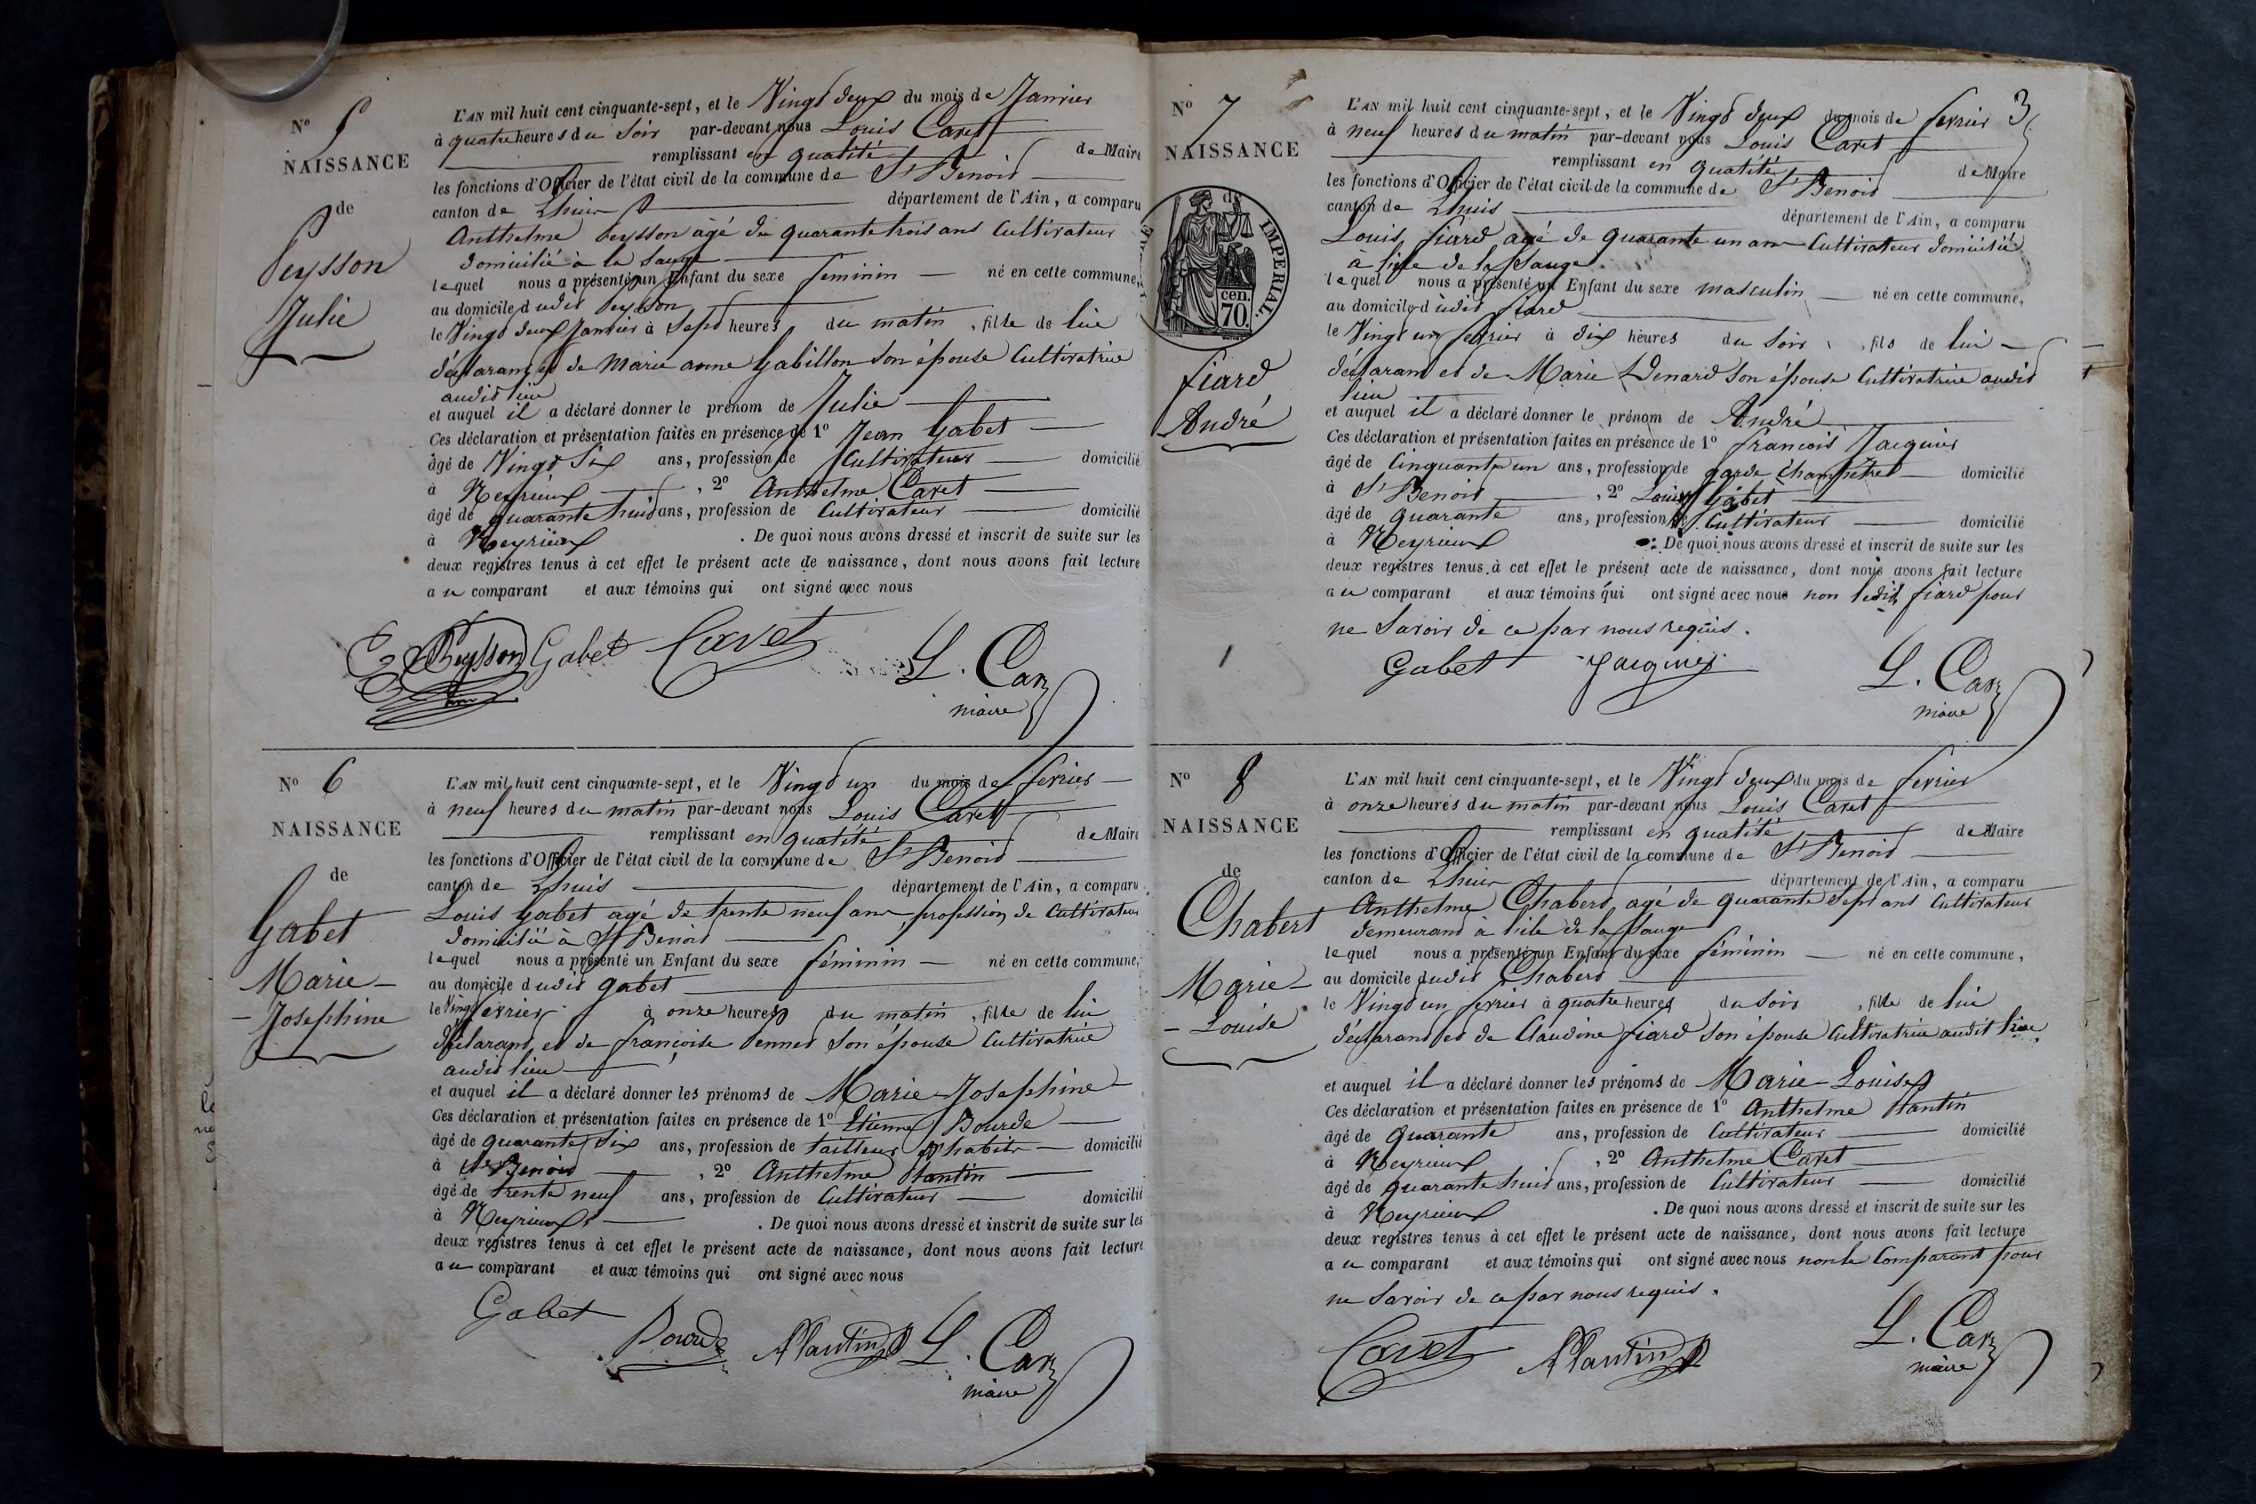 N° 5
NAISSANCE
de
Peysson
Julie
L'AN mil huit cent cinquante-sept, et le Vingt deux du mois de Janvier
à quatre heures du Soir par-devant nous Louis Cavet
remplissant en qualité de Maire
les fonctions d'Officier de l'état civil de la commune de St Benoit
canton de Lhuis département de l'Ain, a comparu
Anthelme Peysson agé de quarante trois ans Cultivateur
domicilié à la Sauge
lequel nous a présenté un Enfant du sexe feminin né en cette commune,
au domicile dudit Peysson
le Vingt deux Janvier à Sept heures du matin, fille de lui
déclarant et de Marie anne Gabillon son épouse Cultivatrice
audit lieu
et auquel il a déclaré donner le prénom de Julie
Ces déclaration et présentation faites en présence de 1° Jean Gabet
âgé de Vingt Six ans, profession de Cultivateur domicilié
à Neyrieux, 2° Anthelme Cavet
âgé de quarante huit ans, profession de Cultivateur domicilié
à Neyrieux. De quoi nous avons dressé et inscrit de suite sur les
deux registres tenus à cet effet le présent acte de naissance, dont nous avons fait lecture
au comparant et aux témoins qui ont signé avec nous
Peysson Gabet Cavet L. Cav
maire
N° 6
NAISSANCE
de
Gabet
Marie-
-Josephine
L'AN mil huit cent cinquante-sept, et le Vingt un du mois de fevrier
à neuf heures du matin par-devant nous Louis Cavet
remplissant en qualité de Maire
les fonctions d'Officier de l'état civil de la commune de St Benoit
canton de Lhuis département de l'Ain, a comparu
Louis Gabet agé de trente neuf ans profession de Cultivateur
domicilié à St Benoit
lequel nous a présenté un Enfant du sexe féminin né en cette commune,
au domicile dudit gabet
le Vingt fevrier à onze heures du matin, fille de lui
déclarant et de françoise Pennet Son épouse Cultivatrice
audit lieu
et auquel il a déclaré donner les prénoms de Marie-Josephine
Ces déclaration et présentation faites en présence de 1° Etienne Bourde
âgé de quarante six ans, profession de tailleur d'habits domicilié
à St Benoit, 2° Anthelme Plantin
âgé de trente neuf ans, profession de Cultivateur domicilié
à Neyrieux. De quoi nous avons dressé et inscrit de suite sur les
deux registres tenus à cet effet le présent acte de naissance, dont nous avons fait lecture
au comparant et aux témoins qui ont signé avec nous
Gabet
Bourde APlantin L. Cav
maire
3
N° 7
NAISSANCE
de
IMPERIAL.
cen.
70.
fiard
André
L'AN mil huit cent cinquante-sept, et le Vingt deux du mois de fevrier
à neuf heures du matin par-devant nous Louis Cavet
remplissant en qualité de Maire
les fonctions d'Officier de l'état civil de la commune de St Benoit
canton de Lhuis département de l'Ain, a comparu
Louis fiard agé de quarante un ans Cultivateur domicilié
à l'ile de la Sauge.
lequel nous a présenté un Enfant du sexe masculin né en cette commune,
au domicile dudit fiard
le Vingt un fevrier à dix heures du Soir, fils de lui
déclarant et de Marie Denard Son épouse Cultivatrice audit
lieu
et auquel il a déclaré donner le prénom de André
Ces déclaration et présentation faites en présence de 1° francois Jacquier
âgé de Cinquante un ans, profession de garde Champêtre domicilié
à St Benoit, 2° Louis Gabet
âgé de quarante ans, profession de Cultivateur domicilié
à Neyrieux. De quoi nous avons dressé et inscrit de suite sur les
deux registres tenus à cet effet le présent acte de naissance, dont nous avons fait lecture
au comparant et aux témoins qui ont signé avec nous non ledit fiard pour
ne Savoir de ce par nous requis.
Gabet Jacquier L. Cav
maire
N° 8
NAISSANCE
de
Chabert
Marie-
-Louise
L'AN mil huit cent cinquante-sept, et le Vingt deux du mois de fevrier
à onze heures du matin par-devant nous Louis Cavet
remplissant en qualité de Maire
les fonctions d'Officier de l'état civil de la commune de St Benoit
canton de Lhuis département de l'Ain, a comparu
Anthelme Chabert agé de quarante Sept ans Cultivateur
demeurant à l'ile de la Sauge
lequel nous a présenté un Enfant du sexe féminin né en cette commune,
au domicile dudit Chabert
le Vingt un fevrier à quatre heures du Soir, fille de lui
déclarant et de Claudine fiard Son épouse Cultivatrice audit lieu.
et auquel il a déclaré donner les prénoms de Marie-Louise
Ces déclaration et présentation faites en présence de 1° Anthelme Plantin
âgé de quarante ans, profession de Cultivateur domicilié
à Neyrieux, 2° Anthelme Cavet
âgé de quarante huit ans, profession de Cultivateur domicilié
à Neyrieux. De quoi nous avons dressé et inscrit de suite sur les
deux registres tenus à cet effet le présent acte de naissance, dont nous avons fait lecture
au comparant et aux témoins qui ont signé avec nous non le Comparant pour
ne Savoir de ce par nous requis.
Cavet APlantin L. Cav
maire